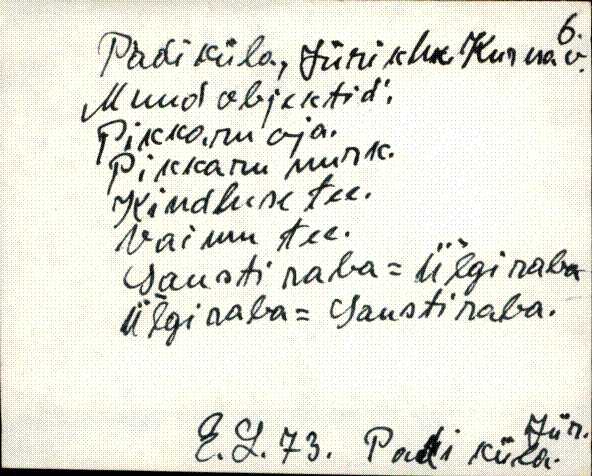 6.
Padiküla, Jüri khk Kurna v.
Muud objektid.
Pikkaru oja.
Pikkaru nurk.
Kindluse tee.
Vaimu tee.
Sausti raba = Ülgi raba
Ülgi raba = Sausti raba.
Jür.
E.L. 73. Padi küla.